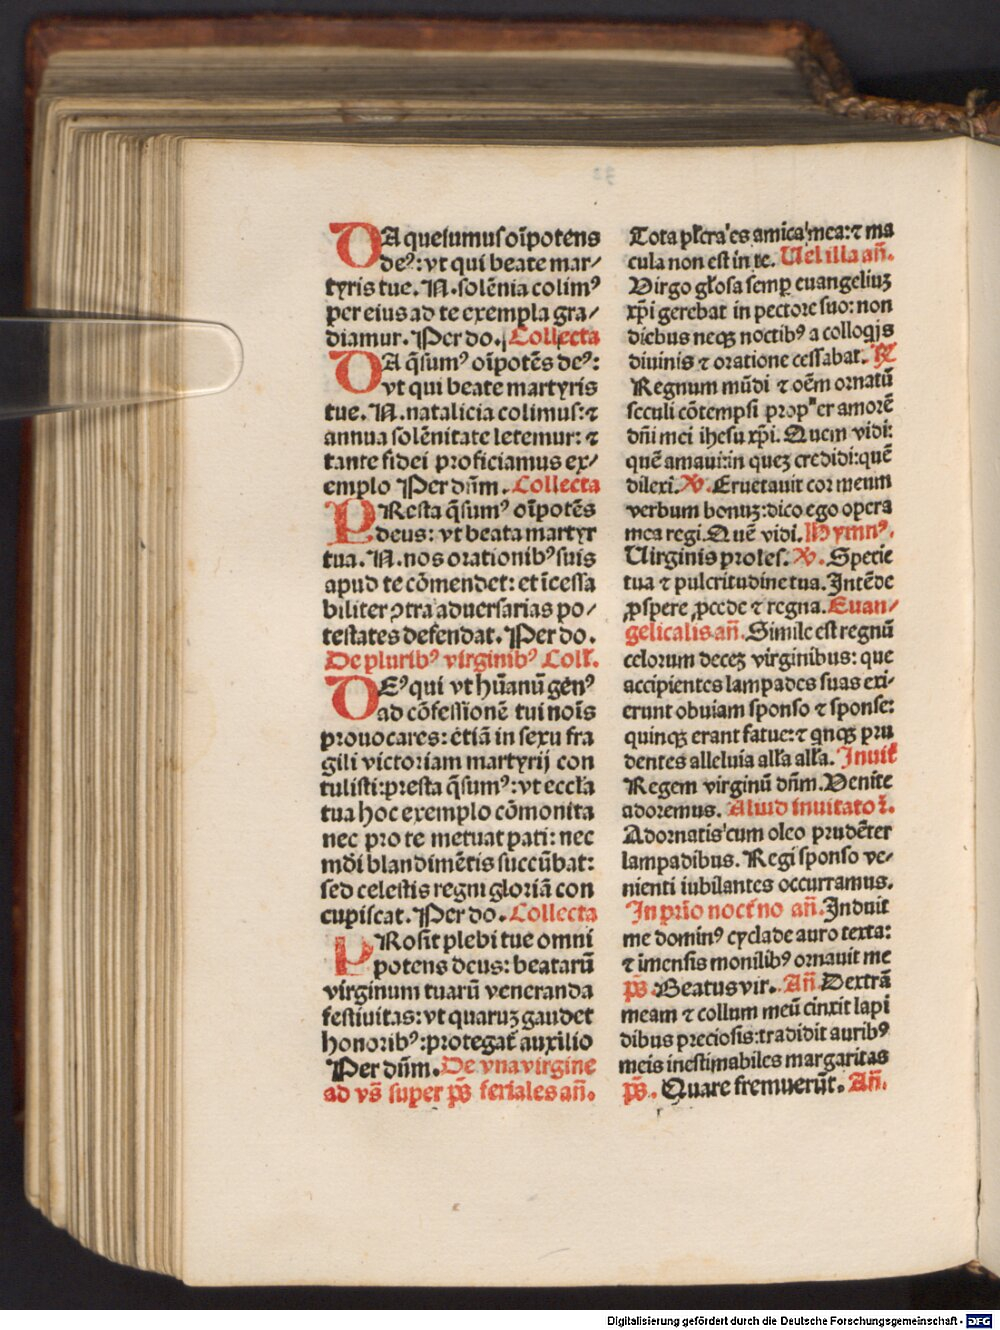 DA quesumus oīpotens
deꝰ: vt qui beate mar⸗
tyris tue. N. solēnia colimꝰ
per eius ad te exempla gra⸗
diamur. Per do. Collecta
DA q̄sumꝰ oīpotēs deꝰ:
vt qui beate martyris
tue. N. natalicia colimus: ⁊
annua solēnitate letemur: ⁊
tante fidei proficiamus ex⸗
emplo Per dn̄m. Collecta
PResta q̄sumꝰ oīpotēs
deus: vt beata martyr
tua. N. nos orationibꝰ suis
apud te cōmendet: et īcessa
biliter ↄtra aduersarias po⸗
testates defendat. Per do.
De pluribꝰ virginibꝰ Coll̄.
DEꝰ qui vt hūanū genꝰ
ad cōfessionē tui noīs
prouocares: etiā in sexu fra
gili victoriam martyrij con
tulisti: presta q̄sumꝰ: vt eccl̄a
tua hoc exemplo cōmonita
nec pro te metuat pati: nec
mōi blandimētis succūbat:
sed celestis regni gloriā con
cupiscat. Per do. Collecta
PRosit plebi tue omni
potens deus: beatarū
virginum tuarū veneranda
festiuitas: vt quaruꝫ gaudet
honoribꝰ: protegat̄ auxilio
Per dn̄m. De vna virgine
ad vs̄ super ps̄ feriales an̄.
Tota pl̄cra es amica mea: ⁊ ma
cula non est in te. Uel illa an̄.
Virgo gl̄osa semꝑ euangeliuꝫ
xp̄i gerebat in pectore suo: non
diebus neqꝫ noctibꝰ a colloqijs
diuinis ⁊ oratione cessabat. ℟
Regnum mūdi ⁊ oēm ornatū
seculi cōtempsi propter amorē
dn̄i mei ihesu xp̄i. Quem vidi:
quē amaui: in queꝫ credidi: quē
dilexi. ℣. Eructauit cor meum
verbum bonuꝫ: dico ego opera
mea regi. Quē vidi. Hymnꝰ.
Uirginis proles. ℣. Specie
tua ⁊ pulcritudine tua. Intēde
ꝓspere ꝓcede ⁊ regna. Euan⸗
gelicalis an̄. Simile est regnū
celorum deceꝫ virginibus: que
accipientes lampades suas exi⸗
erunt obuiam sponso ⁊ sponse:
quinqꝫ erant fatue: ⁊ qnqꝫ pru
dentes alleluia all̄a all̄a. Inuit̄
Regem virginū dn̄m. Venite
adoremus. Aliud inuitator̄.
Adornatis cum oleo prudēter
lampadibus. Regi sponso ve⸗
nienti iubilantes occurramus.
In prīo noct̄no an̄. Induit
me dominꝰ cyclade auro texta:
⁊ īmensis monilibꝰ ornauit me
ps̄. Beatus vir. An̄. Dextrā
meam ⁊ collum meū cinxit lapi
dibus preciosis: tradidit auribꝰ
meis inestimabiles margaritas
ps̄. Quare fremuerūt. An̄.
Digitalisierung gefördert durch die Deutsche Forschungsgemeinschaft - DFG